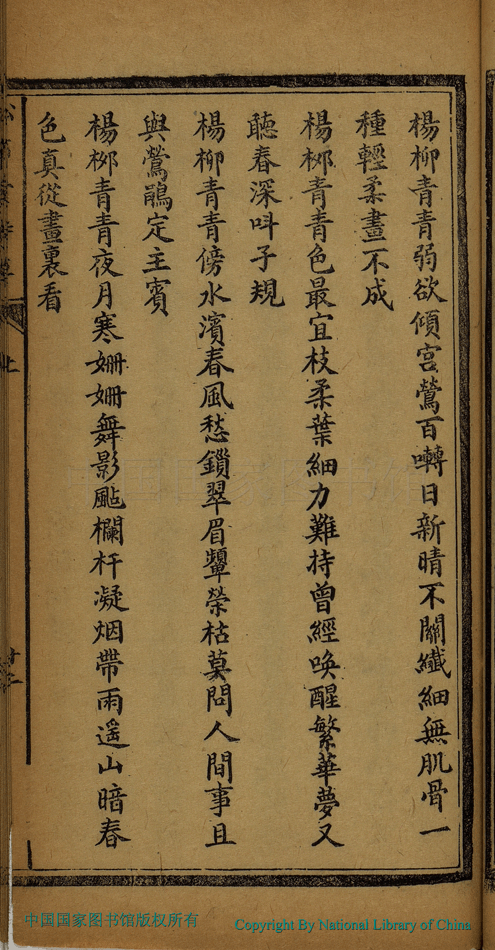 楊柳青青弱欲傾宮鶯百囀日新晴不關纖細無肌骨一
種輕柔畫不成
楊桺青青色最宜枝柔葉細力難持曾經喚醒繁華夢又
聽春深呌子規
楊柳青青傍水濱春風愁鎖翠眉顰榮枯莫問人間事且
與鶯鵑定主賓
楊桺青青夜月寒姍姍舞影颭欄杆凝烟帶雨遥山暗春
色真從畫裏看
中国国家图书馆版权所有
Copyright By National Library of China